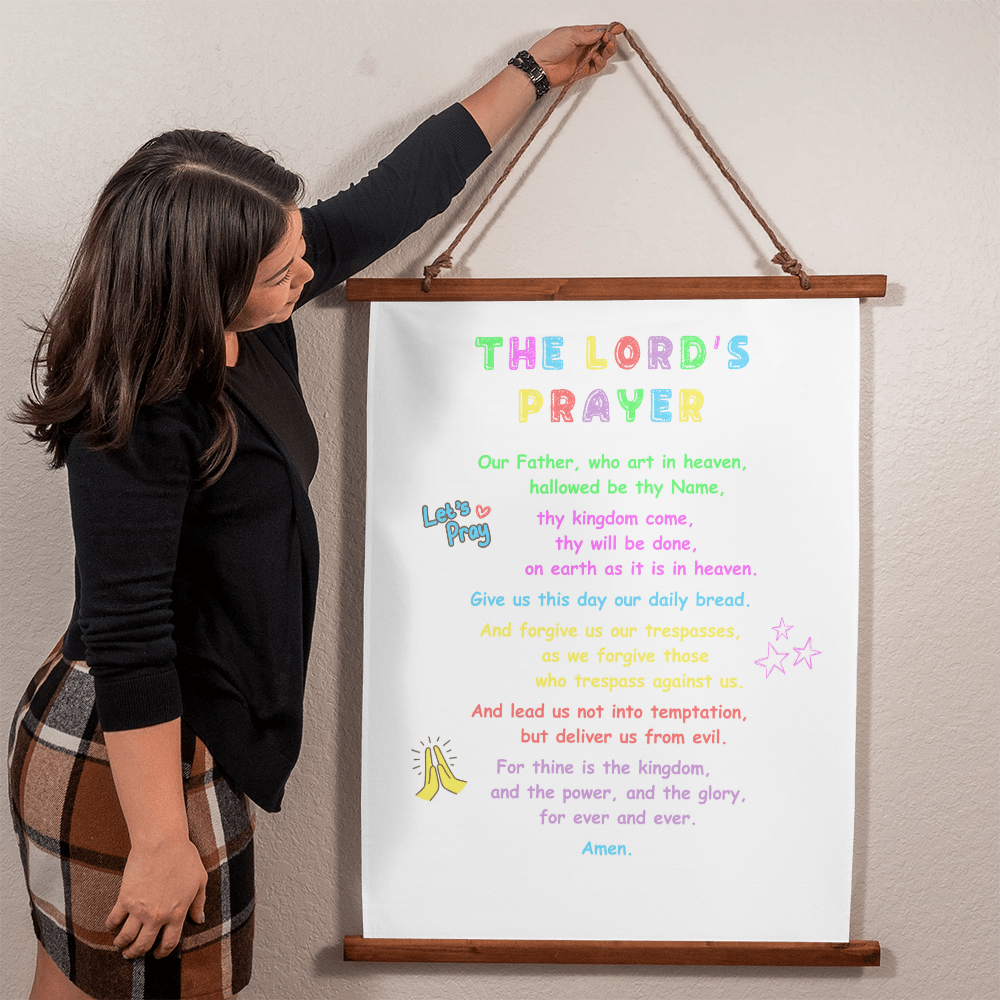 THE LORD'S
PRAYER
Our Father, who art in heaven,
hallowed be thy Name,
Let's
Pray
thy kingdom come,
thy will be done,
on earth as it is in heaven.
Give us this day our daily bread.
And forgive us our trespasses,
as we forgive those
who trespass against us.
And lead us not into temptation,
but deliver us from evil.
For thine is the kingdom,
and the power, and the glory,
for ever and ever.
Amen.